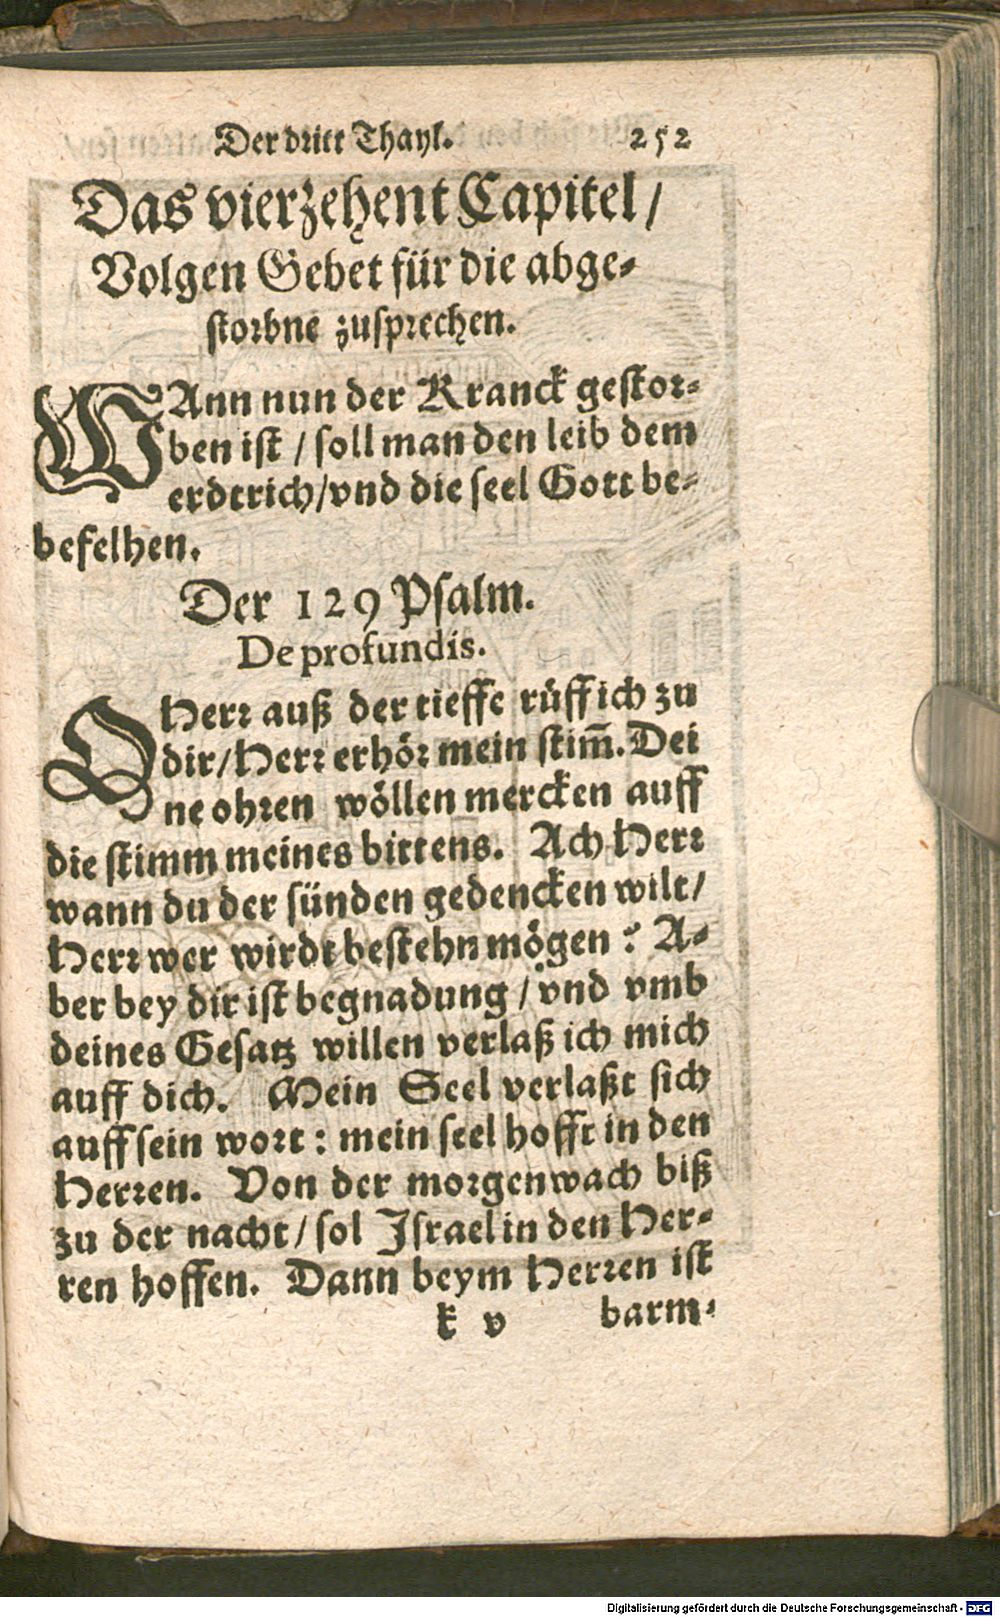 Der dritt Thayl. 252
Das vierzehent Capitel/
Volgen Gebet für die abge-
storbne zusprechen.
WAnn nun der Kranck gestor-
ben ist / soll man den leib dem
erdtrich/vnd die seel Gott be-
befelhen.
Der 129 Psalm.
De profundis.
O Herr auß der tieffe rüff ich zu
dir/Herr erhör mein stim̃. Dei
ne ohren wöllen mercken auff
die stimm meines bittens. Ach Herr
wann du der sünden gedencken wilt/
Herr wer wirdt bestehn mögen? A-
ber bey dir ist begnadung / vnd vmb
deines Gesatz willen verlaß ich mich
auff dich. Mein Seel verlaßt sich
auff sein wort: mein seel hofft in den
Herren. Von der morgenwach biß
zu der nacht/ sol Israel in den Her-
ren hoffen. Dann beym Herren ist
k v barm-
Digitalisierung gefördert durch die Deutsche Forschungsgemeinschaft - DFG